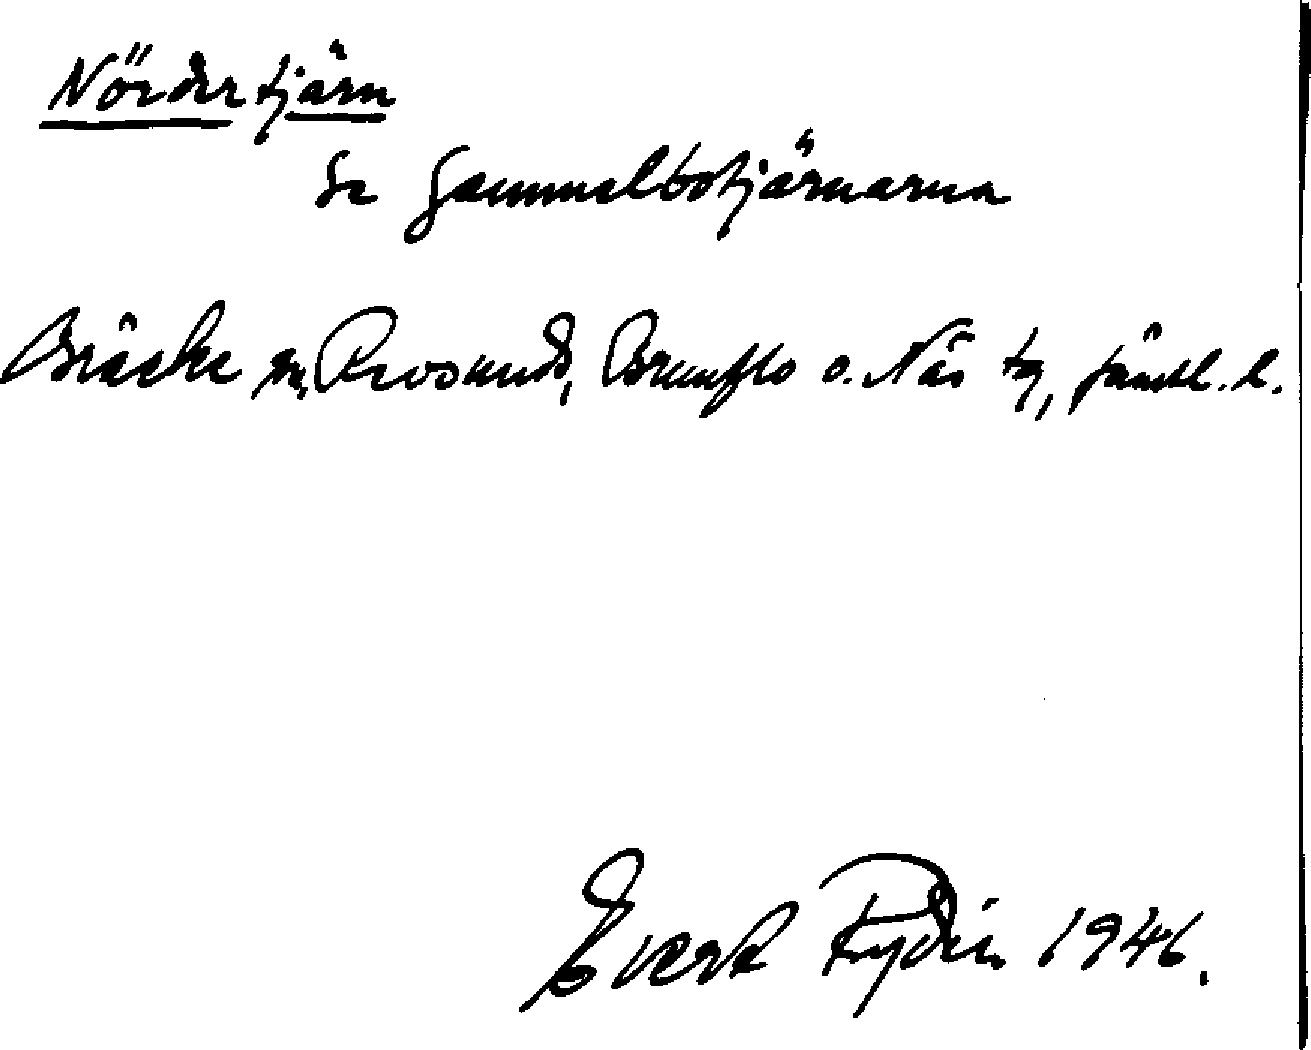 Nördertjärn
Se Gammelbotjärnarna
Bräcke sn, Revsunds, Brunflo o. Näs tg, Jämtl. l.
Evert Rydin 1946.